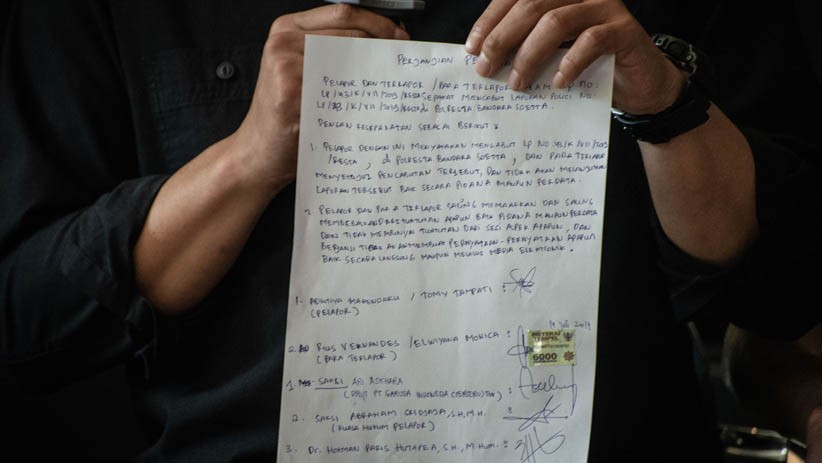 PERJANJIAN PE
PELAPOR DAN TERLAPOR / PARA TERLAPOR NO:
SEPAKAT MENCABUT LAPORAN POLISI NO:
di POLRESTA BANDARA SOETTA.
DENGAN KESEPAKATAN SEBAGAI BERIKUT :
1. PELAPOR DENGAN INI MENYATAKAN MENCABUT LP NO
/RESTA, di POLRESTA BANDARA SOETTA, DAN PARA TERLAPOR
MENYETUJUI PENCABUTAN TERSEBUT, DAN TIDAK AKAN MELANJUTKAN
LAPORAN TERSEBUT BAIK SECARA PIDANA MAUPUN PERDATA.
2. PELAPOR DAN PARA TERLAPOR SALING MEMAAFKAN DAN SALING
MEMBEBASKAN APAPUN BAIK PIDANA MAUPUN PERDATA
DAN TIDAK MEMPUNYAI TUNTUTAN DARI SEGI ASPEK APAPUN, DAN
BERJANJI TIDAK AKAN MEMBUAT PERNYATAAN-PERNYATAAN APAPUN
BAIK SECARA LANGSUNG MAUPUN MELALUI MEDIA ELEKTRONIK.
1. / TOMIY TAMPATI :
(PELAPOR)
19 Juli 2019
2. RIUS VERNANDES / ELWIYANA MONICA :
(PARA TERLAPOR)
METERAI
TEMPEL
6000
1. SAKSI ARI ASKHARA
(DIRUT PT GARUDA INDONESIA (PERSERO) TBK) :
2. SAKSI ABRAHAM SRIDJAJA, S.H, M.H. :
(KUASA HUKUM PELAPOR)
3. Dr. HOTMAN PARIS HUTAPEA, S.H., M.Hum. :